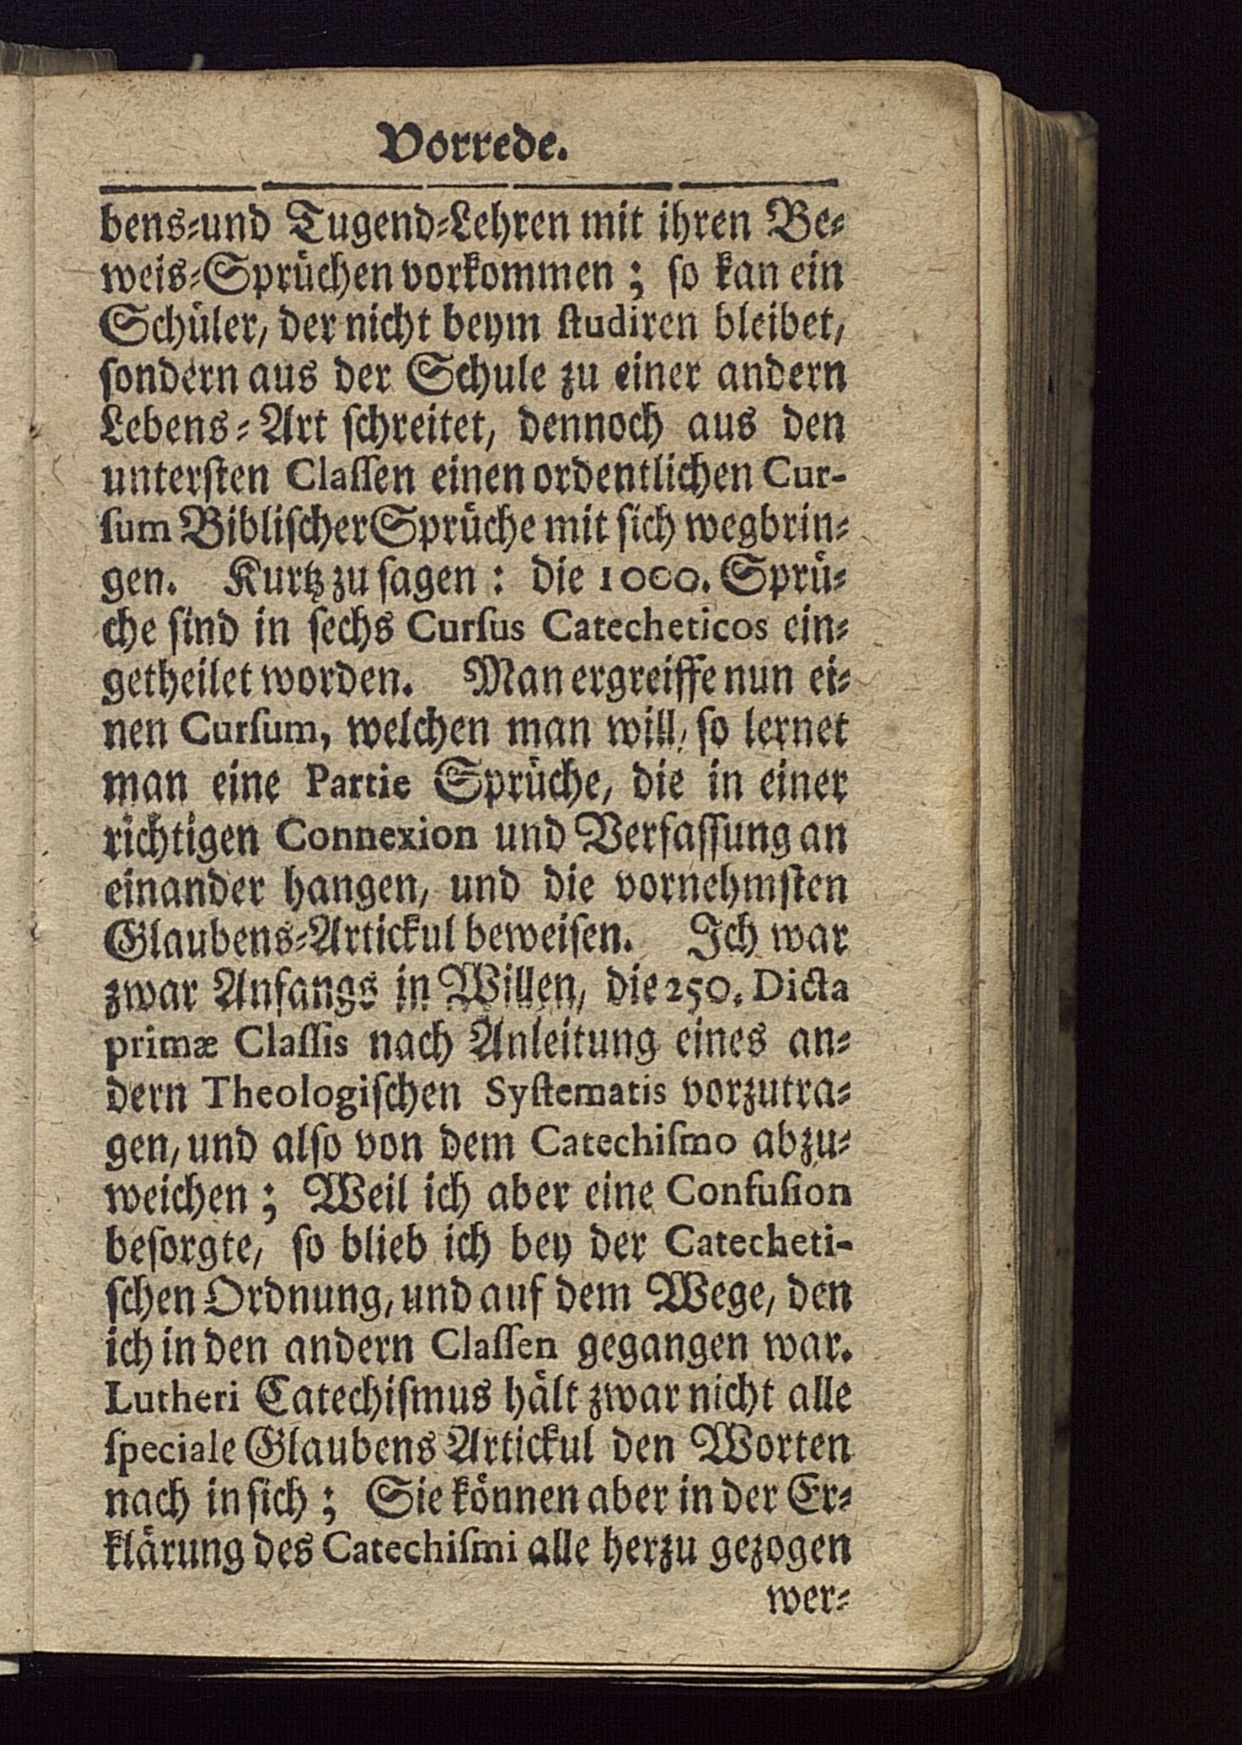 Vorrede.
bens-und Tugend-Lehren mit ihren Be-
weis-Sprüchen vorkommen; so kan ein
Schüler, der nicht beym studiren bleibet,
sondern aus der Schule zu einer andern
Lebens-Art schreitet, dennoch aus den
untersten Classen einen ordentlichen Cur-
sum Biblischer Sprüche mit sich wegbrin-
gen. Kurtz zu sagen: die 1000. Sprü-
che sind in sechs Cursus Catecheticos ein-
getheilet worden. Man ergreiffe nun ei-
nen Cursum, welchen man will, so lernet
man eine Partie Sprüche, die in einer
richtigen Connexion und Verfassung an
einander hangen, und die vornehmsten
Glaubens-Artickul beweisen. Ich war
zwar Anfangs in Willen, die 250. Dicta
primæ Classis nach Anleitung eines an-
dern Theologischen Systematis vorzutra-
gen, und also von dem Catechismo abzu-
weichen; Weil ich aber eine Confusion
besorgte, so blieb ich bey der Catecheti-
schen Ordnung, und auf dem Wege, den
ich in den andern Classen gegangen war.
Lutheri Catechismus hält zwar nicht alle
speciale Glaubens Artickul den Worten
nach in sich; Sie können aber in der Er-
klärung des Catechismi alle herzu gezogen
wer-